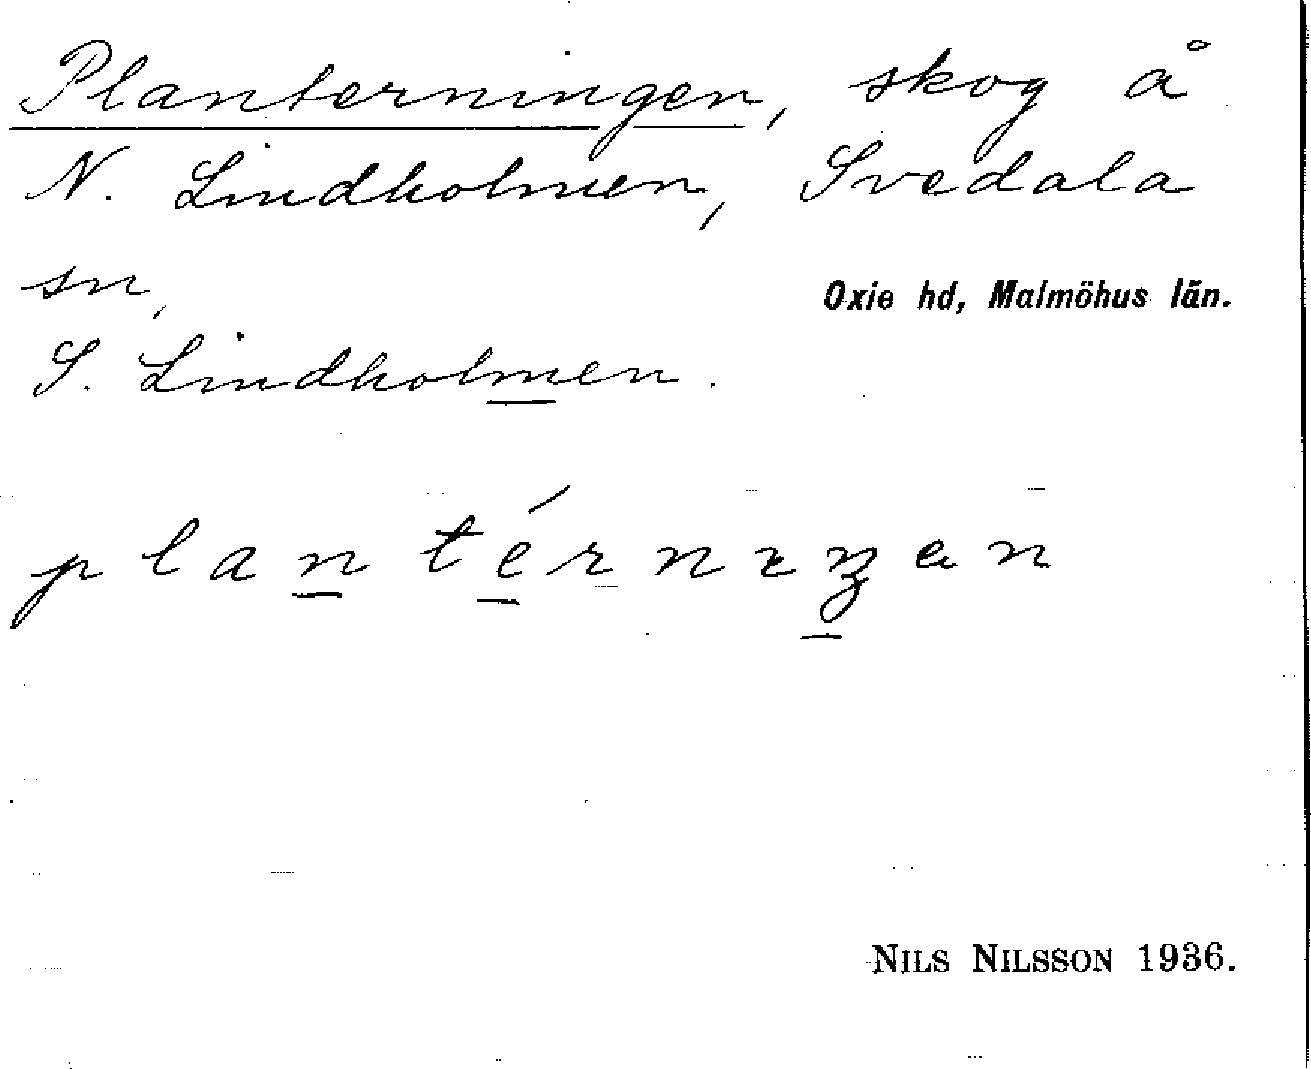 Planterningen, skog å
N. Lindholmen, Svedala
sn,
Oxie hd, Malmöhus län.
S. Lindholmen.
plantérnıŋen
NILS NILSSON 1936.